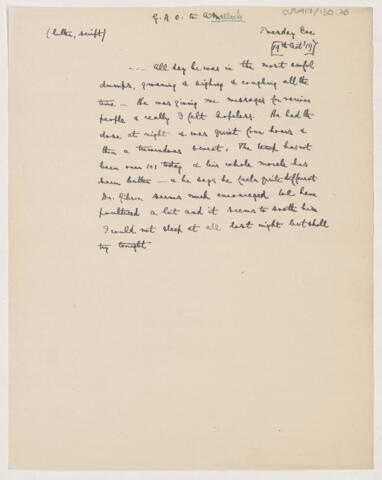 G.A.O. to A Mallock
(letter, script)
Tuesday Eve
[19th Oct '19]
--- All day he was in the most awful
dumps, groaning & sighing & coughing all the
time - He was giving me messages for various
people & really I felt hopeless. He had the
dose at night & was quiet four hours &
then a tremendous sweat. The temp has not
been over 101 today & his whole morale has
been better - & he says he feels quite different
Dr. Gibson seems much encouraged. We have
poulticed a lot and it seems to soothe him
I could not sleep at all last night but shall
try tonight